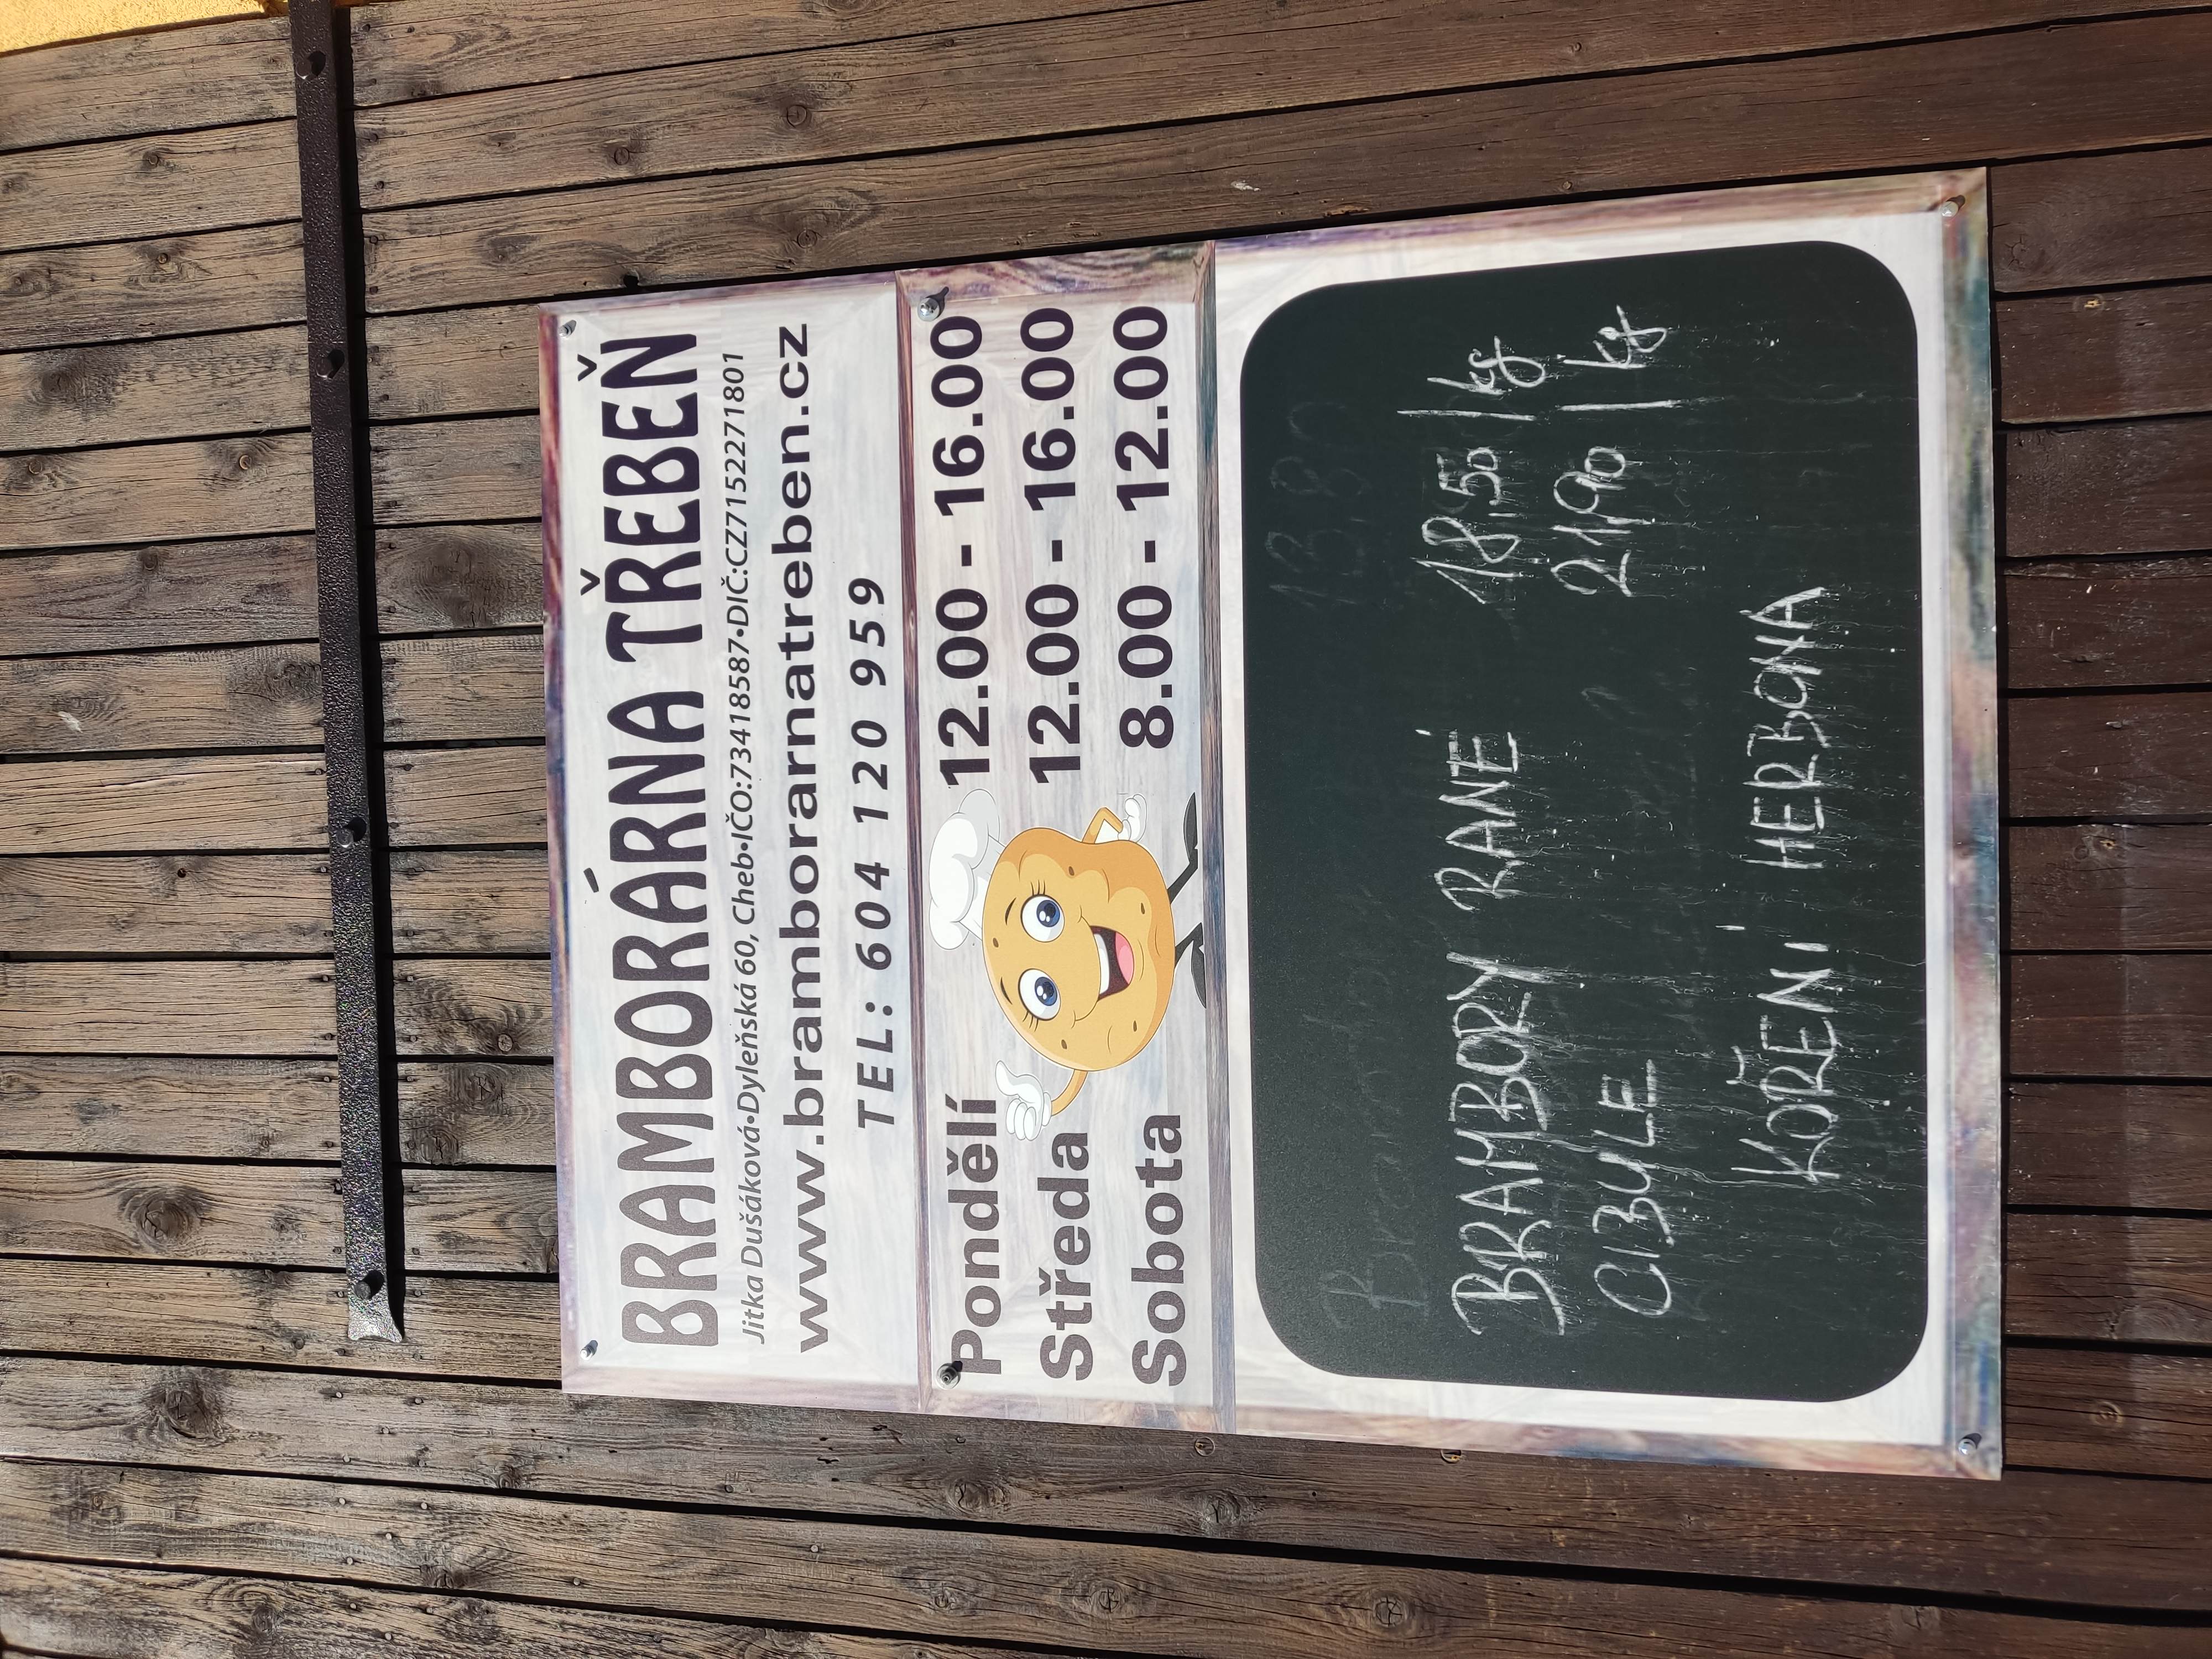 BRAMBORÁRNA TŘEBEŇ
Jitka Dušáková•Dyleňská 60, Cheb•IČO:73418587•DIČ:CZ7152271801
www.bramborarnatreben.cz
TEL: 604 120 959
Pondělí 12.00 - 16.00
Středa 12.00 - 16.00
Sobota 8.00 - 12.00
BRAMBORY RANÉ 18,50 / kg
CIBULE 21,90 / kg
KOŘENÍ HERBONA